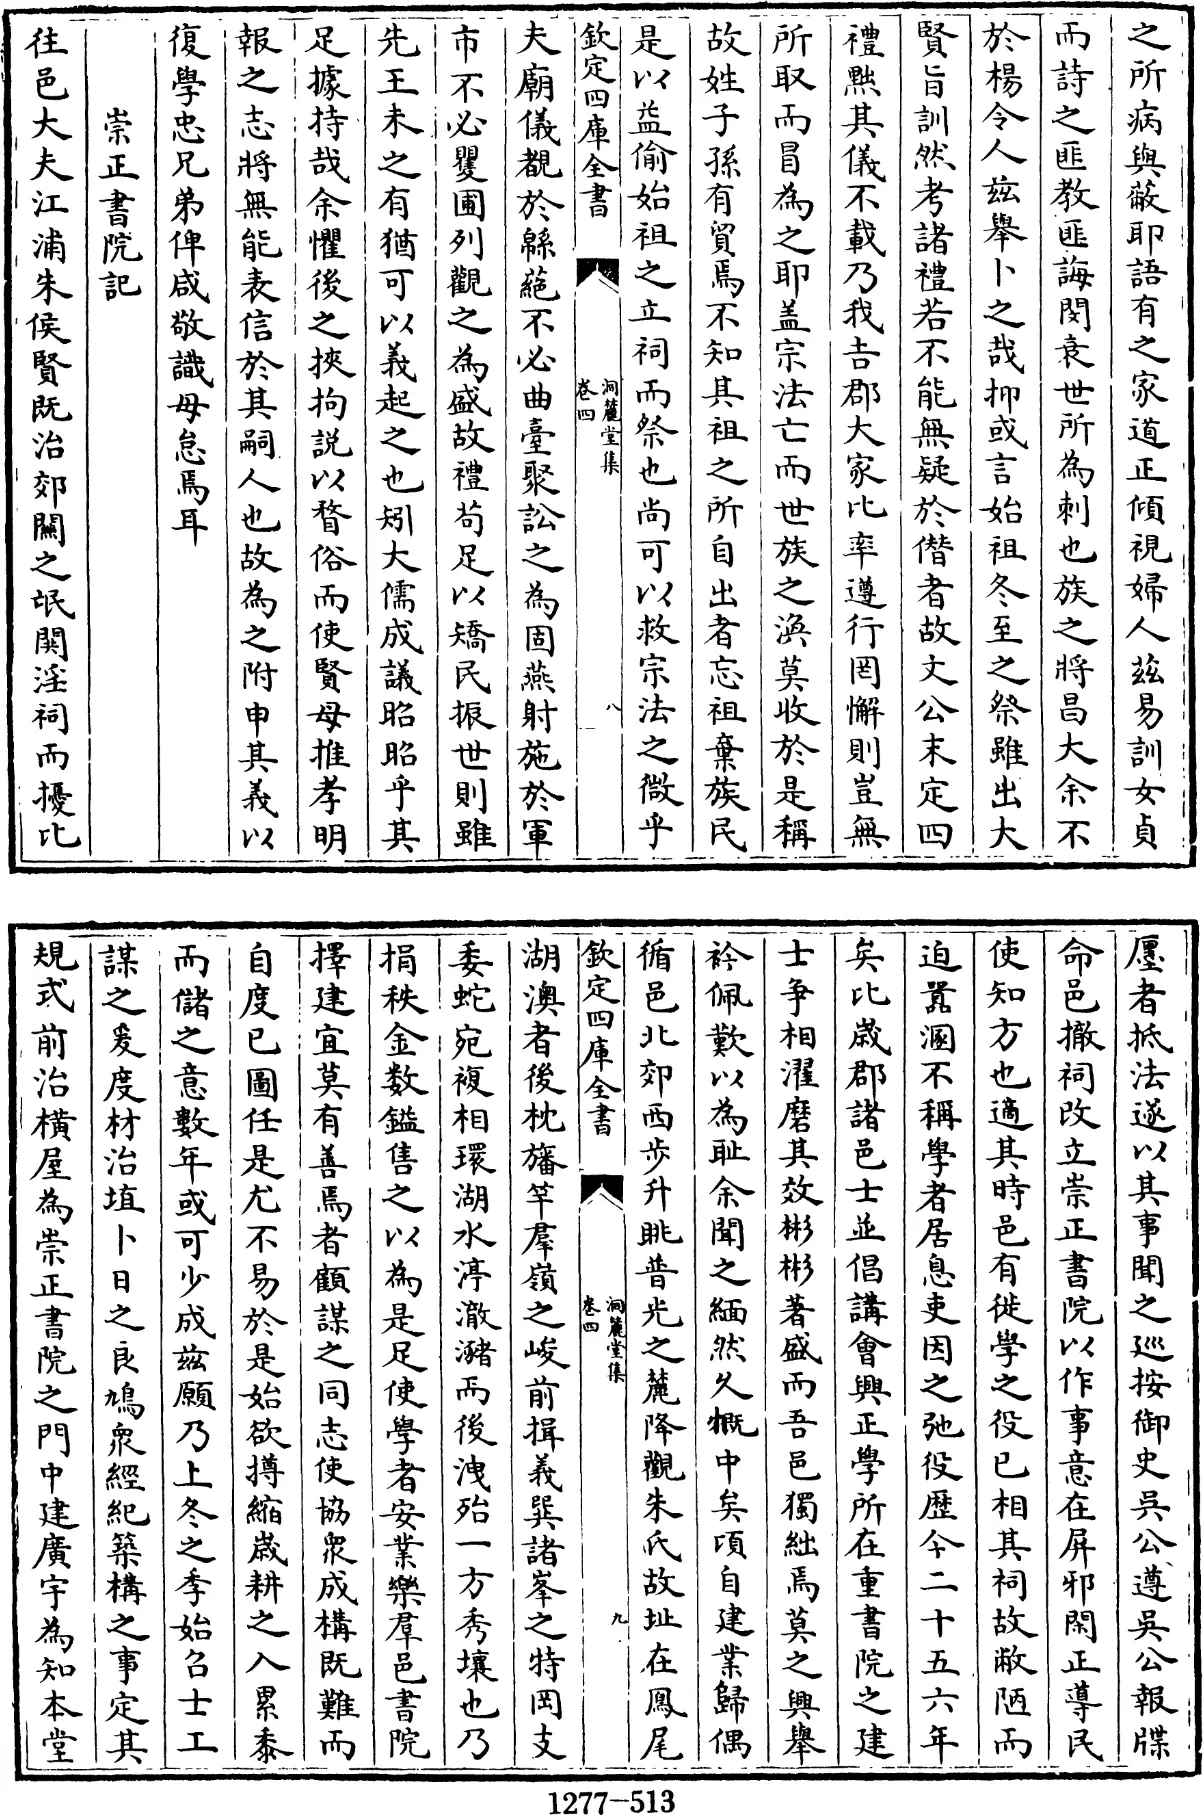 之所病與蔽耶語有之家道正傾視婦人茲易訓女貞
而詩之匪教匪誨閔衰世所為刺也族之將昌大余不
於楊令人茲舉卜之哉抑或言始祖冬至之祭雖出大
賢旨訓然考諸禮若不能無疑於僭者故文公末定四
禮黜其儀不載乃我吉郡大家比率遵行罔懈則豈無
所取而冒為之耶盖宗法亡而世族之渙莫收於是稱
故姓子孫有貿焉不知其祖之所自出者忘祖棄族民
是以益偷始祖之立祠而祭也尚可以救宗法之微乎
欽定四庫全書
洞麓堂集
卷四
八
夫廟儀覩於緜蕝不必曲臺聚訟之為固燕射施於軍
市不必矍圃列觀之為盛故禮苟足以矯民振世則雖
先王未之有猶可以義起之也矧大儒成議昭昭乎其
足據持哉余懼後之挾拘説以瞀俗而使賢母推孝明
報之志將無能表信於其嗣人也故為之附申其義以
復學忠兄弟俾咸敬識毋怠焉耳
崇正書院記
往邑大夫江浦朱侯賢既治郊關之氓闋淫祠而擾比
廛者抵法遂以其事聞之廵按御史吳公遵吳公報牒
命邑撤祠改立崇正書院以作事意在屏邪閑正導民
使知方也適其時邑有徙學之役已相其祠故敝陋而
迫嚚溷不稱學者居息吏因之弛役歷今二十五六年
矣比歲郡諸邑士並倡講會興正學所在重書院之建
士争相濯磨其效彬彬著盛而吾邑獨絀焉莫之興舉
衿佩歎以為耻余聞之緬然久慨中矣頃自建業歸偶
循邑北郊西步升眺普光之麓降觀朱氏故址在鳳尾
欽定四庫全書
洞麓堂集
卷四
九
湖澳者後枕旛竿羣嶺之峻前揖義巽諸峯之特岡支
委蛇宛複相環湖水渟澈瀦而後洩殆一方秀壤也乃
捐秩金数鎰售之以為是足使學者安業樂羣邑書院
擇建宜莫有善焉者顧謀之同志使協衆成構既難而
自度已圖任是尤不易於是始欲撙縮歲耕之入累黍
而儲之意數年或可少成茲願乃上冬之季始召士工
謀之爰度材治埴卜日之良鳩衆經紀築構之事定其
規式前治横屋為崇正書院之門中建廣宇為知本堂
1277-513